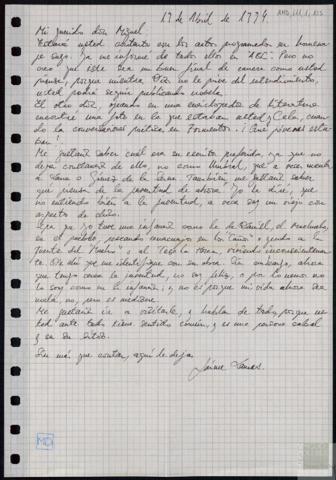 19 de Abril de 1994. AMD,111,1,155
Mi querido don Miguel
Estará usted contento con los actos programados en homena
je suyo. Ya me informé de todos ellos en ABC. Pero no
creo que este sea un buen final de carrera como usted
piensa, porque mientras Dios no le prive del entendimiento,
usted podrá seguir publicando novela.
El otro día, ojeando en una enciclopedia de Literatura
encontré una foto en la que estaban usted y Cela, cuan
do la conversaciones poéticas en Formentor. ¡Qué jóvenes esta
ban!
Me gustaría saber cual era su escritor preferido, ya que no
deja constancia de ello, no como Umbral, que a veces mienta
a Sana o Gómez de la Serna. También me gustaría saber
qué piensa de la juventud de ahora. Yo le diré, que
no entiendo bien a la juventud, a veces soy un viejo con
aspecto de chico.
Que yo tuve una infancia como la de Daniel, el Mochuelo,
en el pueblo, pescando en los caños o yendo a la
Fuente del y al riendo inconsciente
te. De ahí que me identifique con su obra. Sin embargo, ahora
que tengo cerca la juventud, no soy feliz, o por lo menos no
lo soy como en la infancia; y no es porque mi vida ahora sea
mala, no, pero es mediocre.
Me gustaría ir a visitarle, y hablar de todo, porque us
ted ante todo tiene sentido común, y es una persona cabal
y en su sitio.
Sin más que contar, aquí le deja,
Jaime
MD